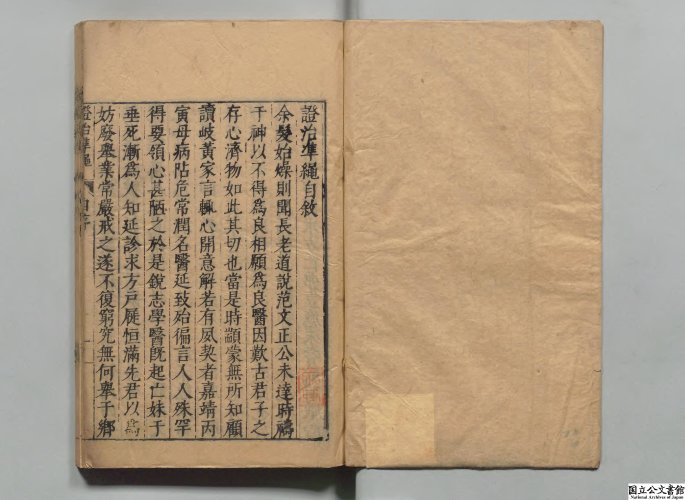 證治準繩自敘
余髮始燥則聞長老道說范文正公未達時禱
于神以不得為良相願為良醫因歎古君子之
存心濟物如此其切也當是時顓蒙無所知顧
讀岐黃家言輒心開意解若有夙契者嘉靖丙
寅母病阽危常潤名醫延致殆徧言人人殊罕
得要領心甚陋之於是銳志學醫既起亡妹于
垂死漸為人知延診求方戶屨恒滿先君以為
妨廢舉業常嚴戒之遂不復窮究無何舉于鄉
證治準繩
自序
国立公文書館
National Archives of Japan